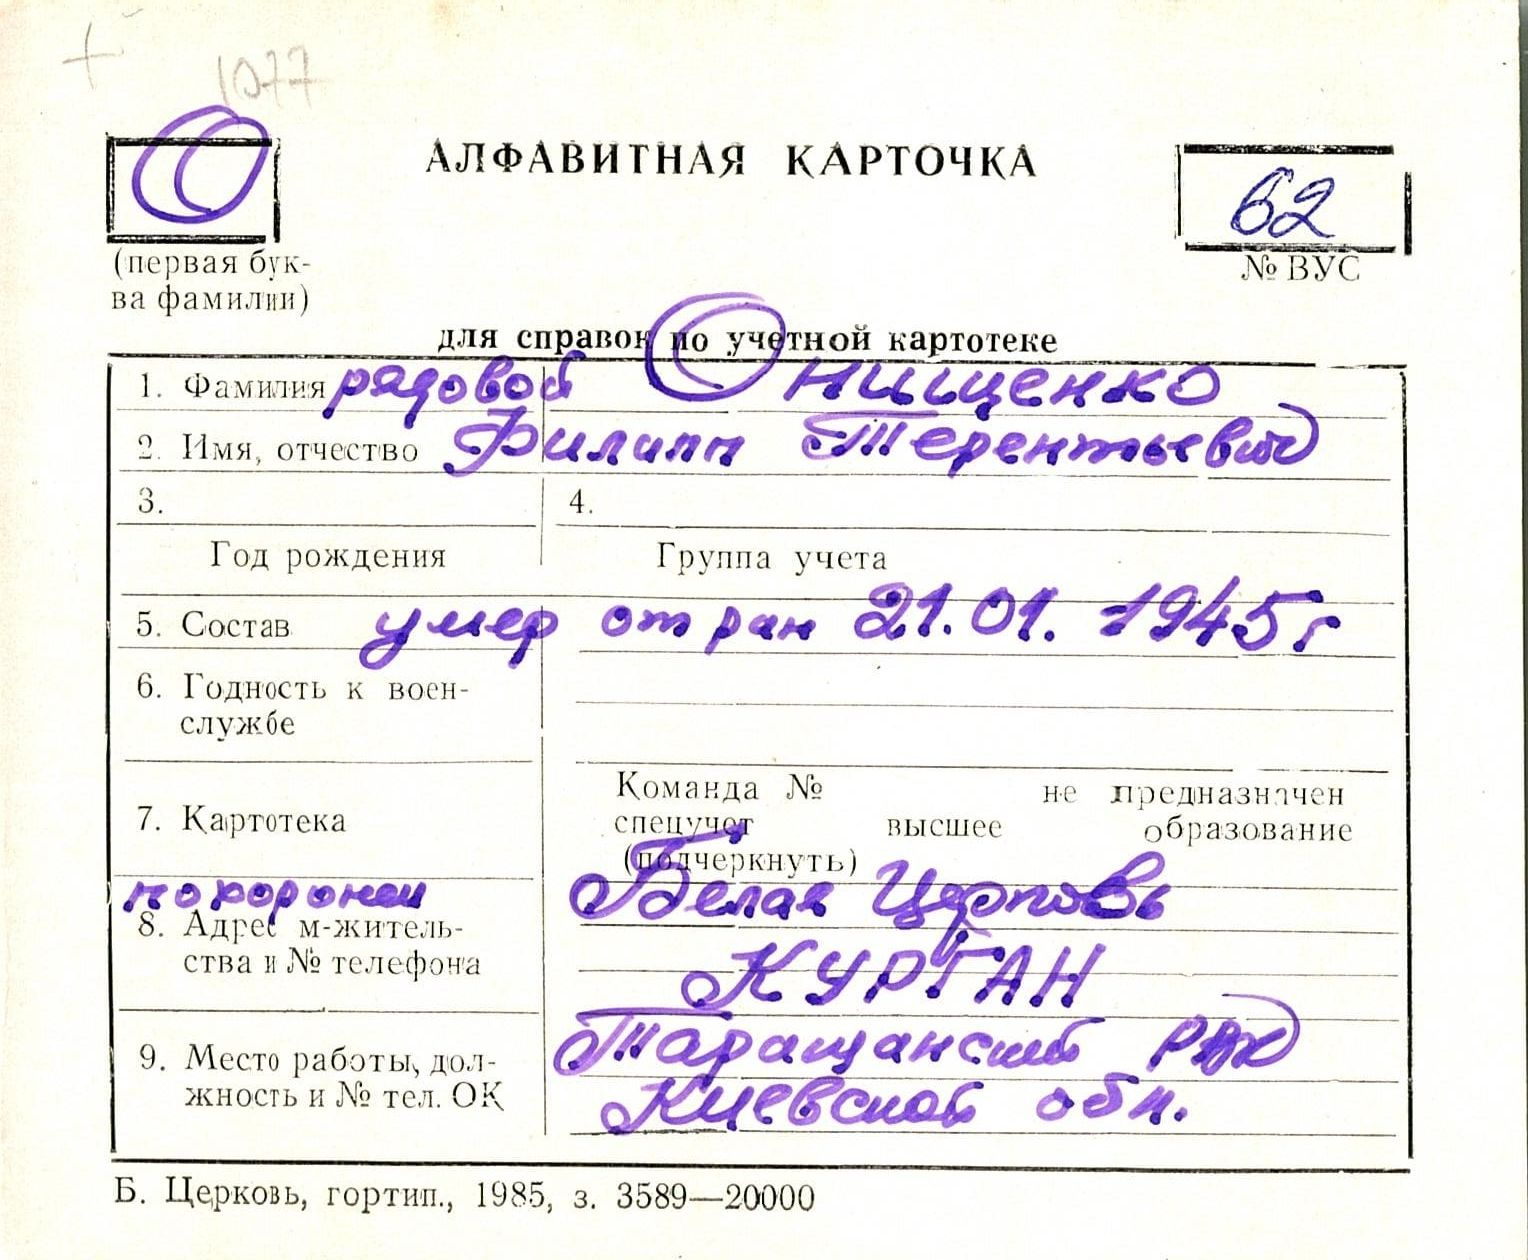 +
1077
О
АЛФАВИТНАЯ КАРТОЧКА
62
(первая бук-
ва фамилии)
№ ВУС
для справок по учетной картотеке
1. Фамилия рядовой Онищенко
2. Имя, отчество Филипп Терентьевич
3. 4.
Год рождения Группа учета
5. Состав умер от ран 21.01.-1945 г
6. Годность к воен-
службе
Команда № не предназначен
7. Картотека
спецучет высшее образование
(подчеркнуть)
похоронен Белая Церковь
8. Адрес м-житель-
ства и № телефона
КУРГАН
Таращанский РВК
9. Место работы, дол-
жность и № тел. ОК
Киевской обл.
Б. Церковь, гортип., 1985, з. 3589—20000